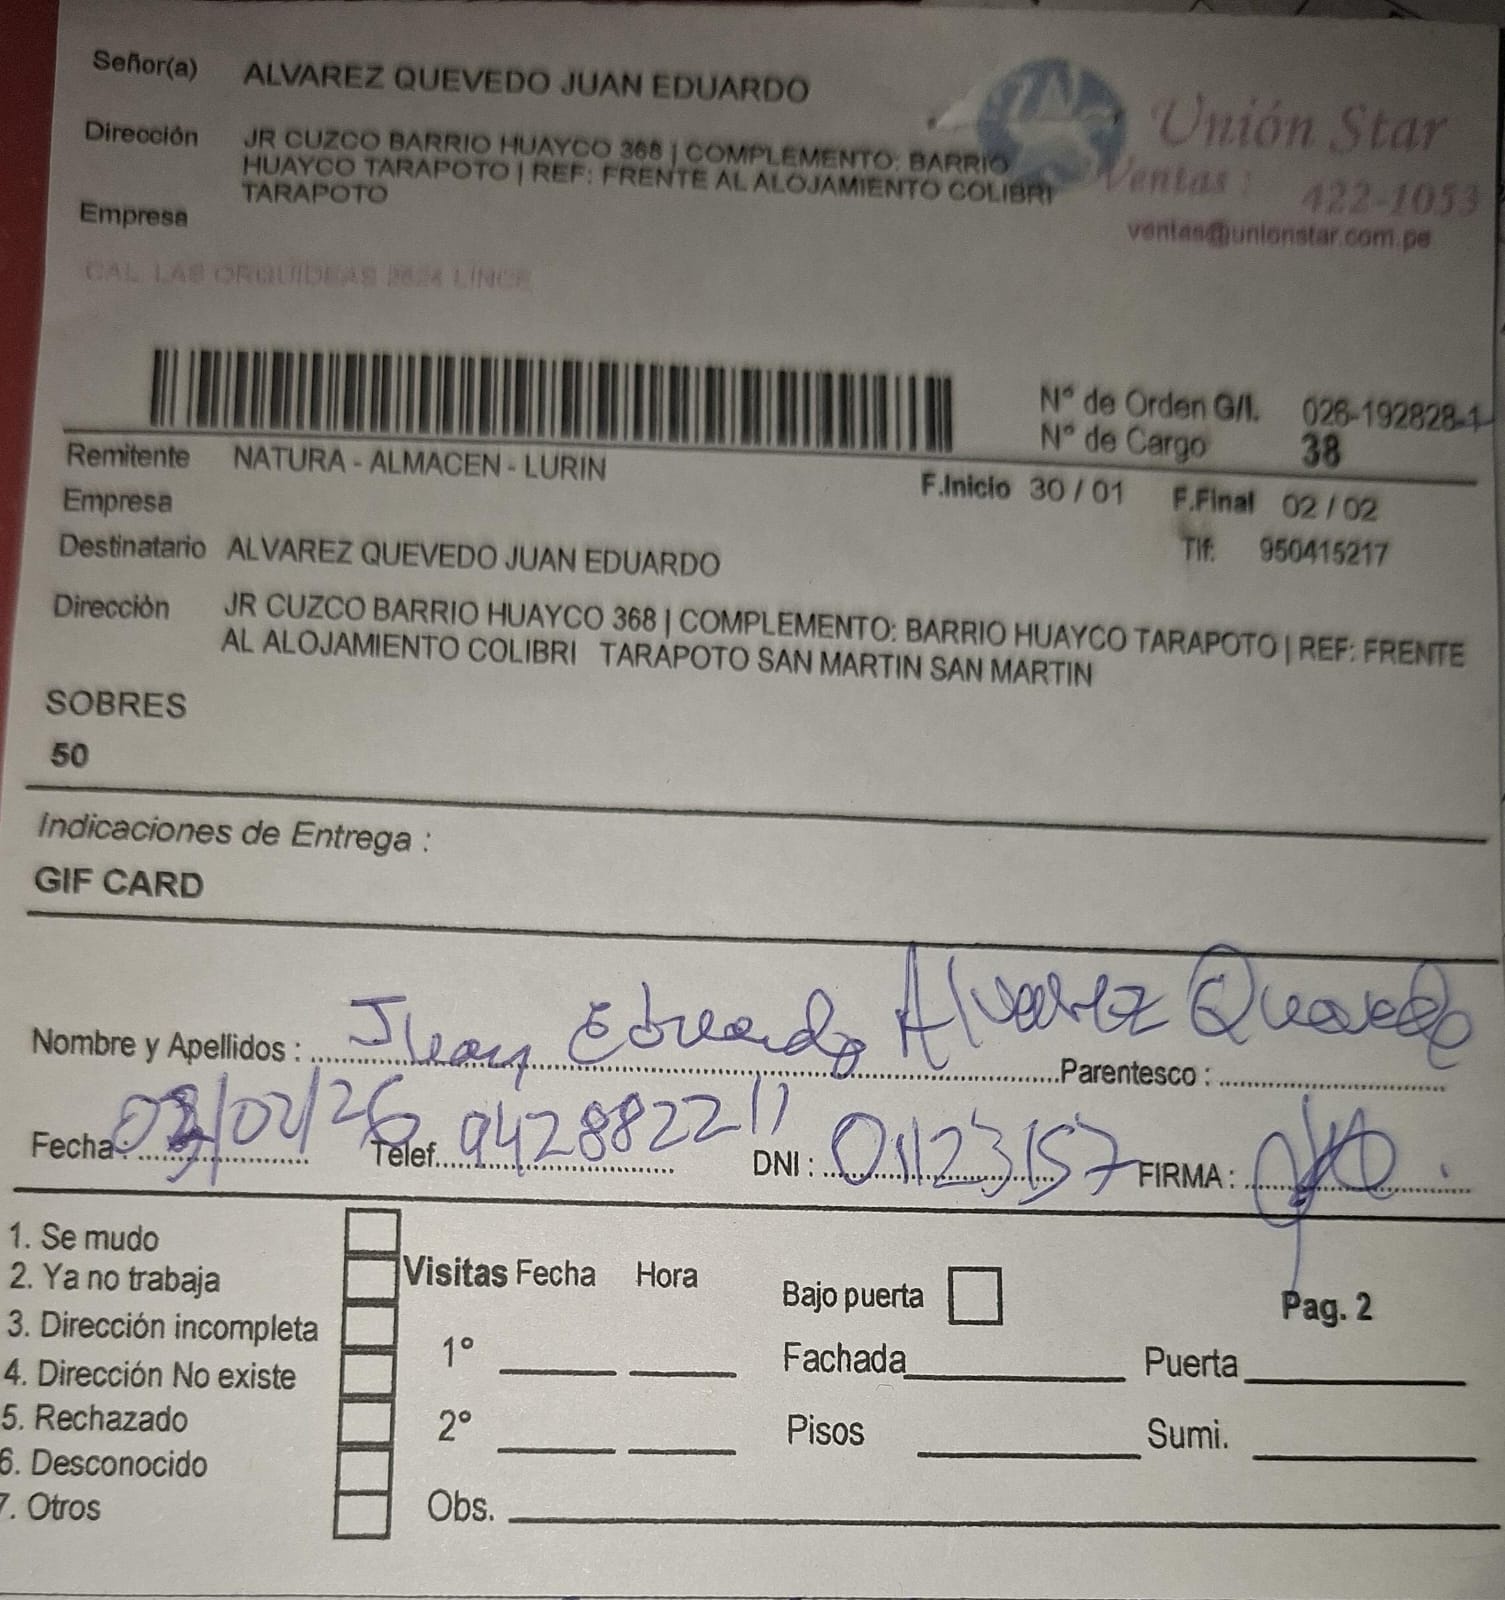 Señor(a) ALVAREZ QUEVEDO JUAN EDUARDO
Unión Star
Dirección JR CUZCO BARRIO HUAYCO 368 | COMPLEMENTO: BARRIO
HUAYCO TARAPOTO | REF: FRENTE AL ALOJAMIENTO COLIBRI
TARAPOTO
Ventas : 422-1053
ventas@unionstar.com.pe
Empresa
CAL. LAS ORQUIDEAS 2624 LINCE
Nº de Orden G/I. 026-192828-1
Nº de Cargo 38
Remitente NATURA - ALMACEN - LURIN
F.Inicio 30 / 01 F.Final 02 / 02
Empresa
Destinatario ALVAREZ QUEVEDO JUAN EDUARDO
Tlf: 950415217
Dirección JR CUZCO BARRIO HUAYCO 368 | COMPLEMENTO: BARRIO HUAYCO TARAPOTO | REF: FRENTE
AL ALOJAMIENTO COLIBRI TARAPOTO SAN MARTIN SAN MARTIN
SOBRES
50
Indicaciones de Entrega :
GIF CARD
Nombre y Apellidos : Juan Eduardo Alvarez Quevedo Parentesco :
Fecha : 03/02/26 Telef. 942882211 DNI : 01123157 FIRMA :
1. Se mudo
2. Ya no trabaja
3. Dirección incompleta
4. Dirección No existe
5. Rechazado
6. Desconocido
7. Otros
Visitas Fecha Hora
1º
2º
Obs.
Bajo puerta
Pag. 2
Fachada Puerta
Pisos Sumi.